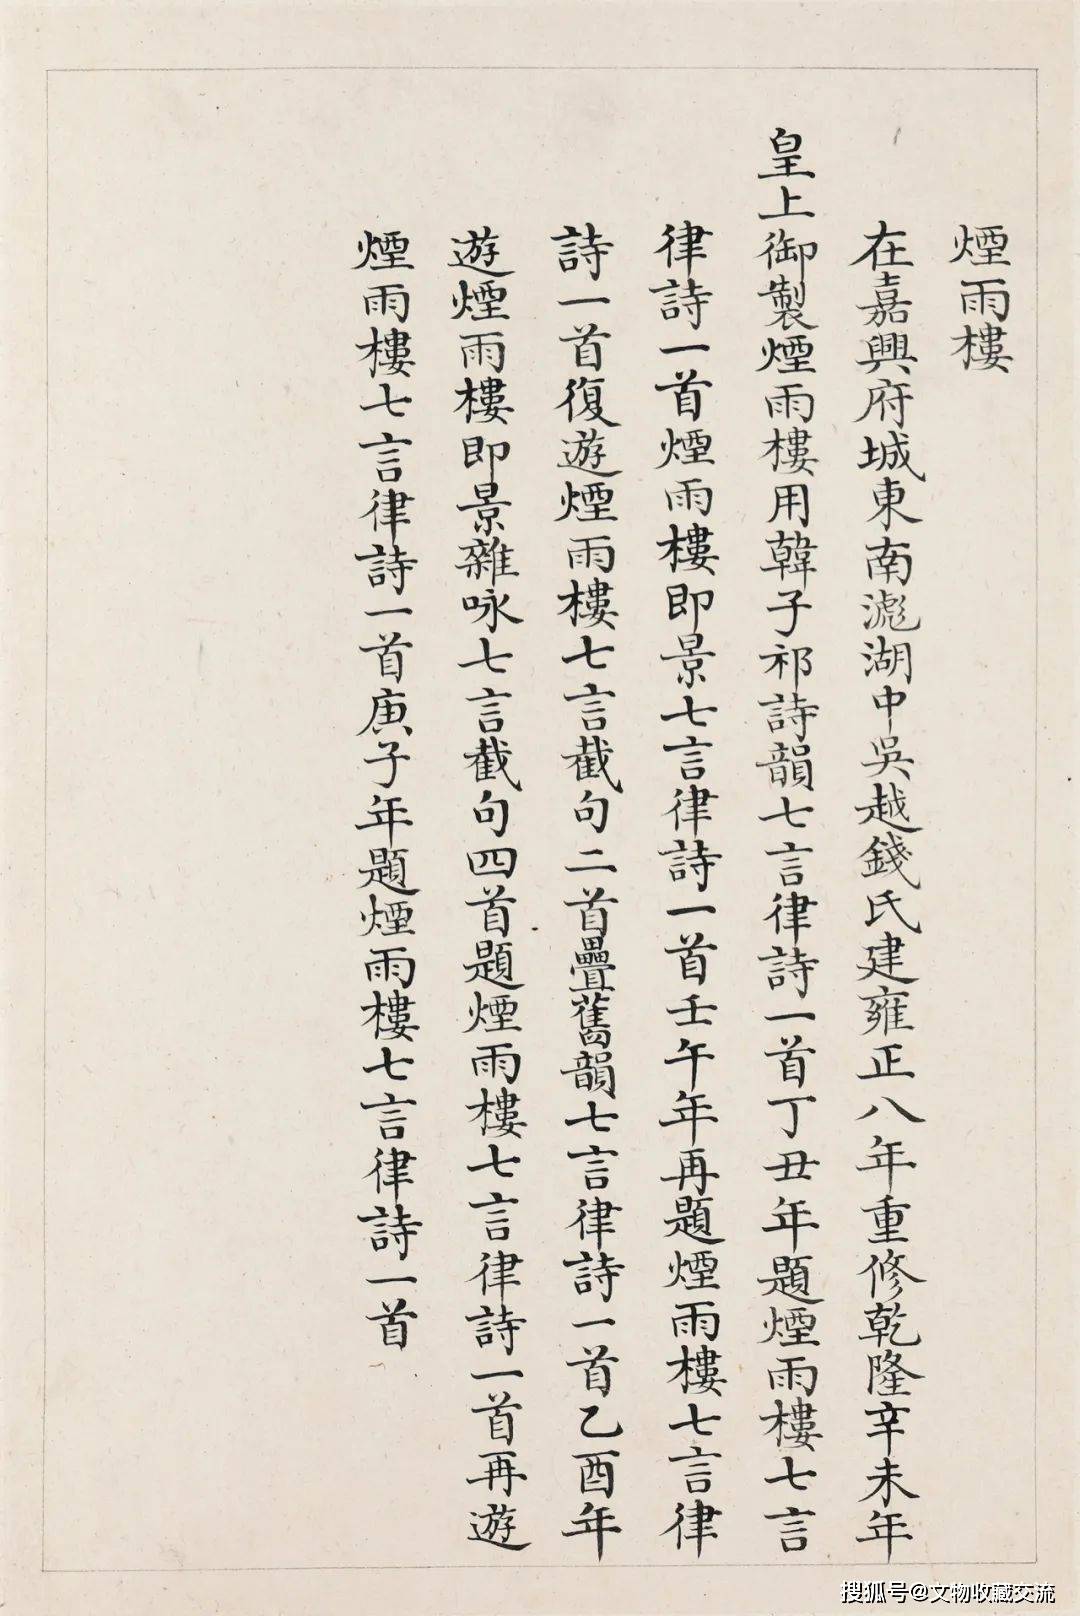 煙雨樓
在嘉興府城東南滮湖中吳越錢氏建雍正八年重修乾隆辛未年
皇上御製煙雨樓用韓子祁詩韻七言律詩一首丁丑年題煙雨樓七言
律詩一首煙雨樓即景七言律詩一首壬午年再題煙雨樓七言律
詩一首復遊煙雨樓七言截句二首疊舊韻七言律詩一首乙酉年
遊煙雨樓即景雜咏七言截句四首題煙雨樓七言律詩一首再遊
煙雨樓七言律詩一首庚子年題煙雨樓七言律詩一首
搜狐号@文物收藏交流